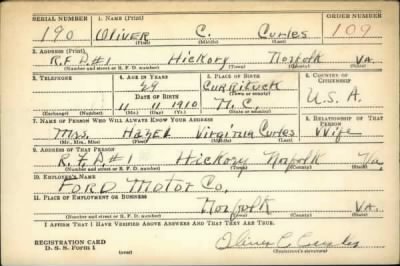 SERIAL NUMBER 1. NAME (Print) ORDER NUMBER
190 OLIVER C. CURLES 109
(First) (Middle) (Last)
2. ADDRESS (Print)
R.F.D.#1 Hickory Norfolk Va.
(Number and street or R. F. D. number) (Town) (County) (State)
3. TELEPHONE 4. AGE IN YEARS 5. PLACE OF BIRTH 6. COUNTRY OF CITIZENSHIP
29 Currituck
(Town or county)
DATE OF BIRTH
11 11 1910 N.C. U.S.A.
(Exchange) (Number) (Mo.) (Day) (Yr.) (State or country)
7. NAME OF PERSON WHO WILL ALWAYS KNOW YOUR ADDRESS 8. RELATIONSHIP OF THAT PERSON
Mrs. Hazel Virginia Curles Wife
(Mr., Mrs., Miss) (First) (Middle) (Last)
9. ADDRESS OF THAT PERSON
R.F.D.#1 Hickory Norfolk Va.
(Number and street or R. F. D. number) (Town) (County) (State)
10. EMPLOYER'S NAME
FORD Motor Co.
11. PLACE OF EMPLOYMENT OR BUSINESS
Norfolk VA.
(Number and street or R. F. D. number) (Town) (County) (State)
I AFFIRM THAT I HAVE VERIFIED ABOVE ANSWERS AND THAT THEY ARE TRUE.
REGISTRATION CARD
D. S. S. Form 1 (over)
Oliver C Curles
(Registrant's signature)